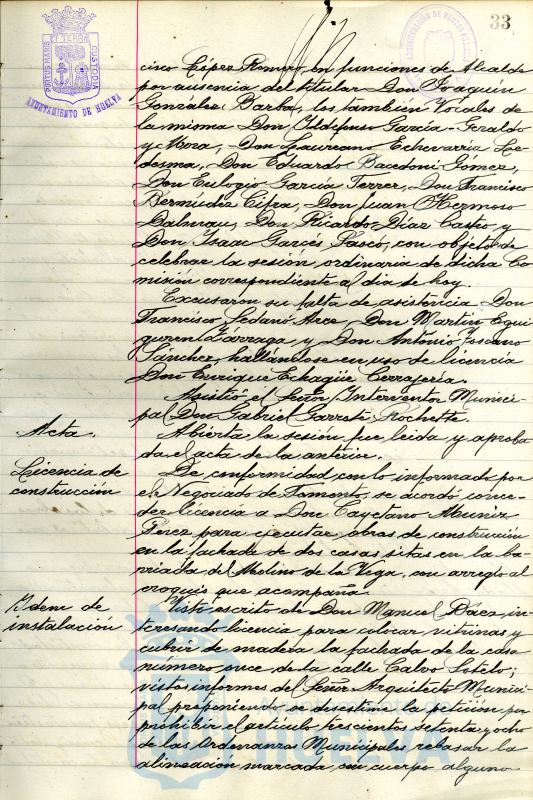 33
PORTUS MARIS
ET TERRÆ
CUSTODIA
AYUNTAMIENTO DE HUELVA
cisco López Romero, en funciones de Alcalde
por ausencia del titular Don Joaquín
González Barba, los también Vocales de
la misma Don Ildefonso García-Geraldo
y Mora, Don Laureano Echevarría Le-
desma, Don Eduardo Bacedoni Gómez,
Don Eulogio García Ferrer, Don Francisco
Bermúdez Cifra, Don Juan O'Hermoso
Dalmau, Don Ricardo Díaz Castro y
Don Isaac Garcés Pascó, con objeto de
celebrar la sesión ordinaria de dicha Co-
misión correspondiente al día de hoy.
Excusaron su falta de asistencia Don
Francisco Sedano Arce, Don Martín Egui-
guren Lárraga, y Don Antonio Toscano
Sánchez, hallándose en uso de licencia
Don Enrique Echagüe Cerrajería.
Asistió el Señor Interventor Munici-
pal Don Gabriel Garreta Rochette.
Acta. Abierta la sesión fue leída y aproba-
da el acta de la anterior.
Licencia de De conformidad con lo informado por
construcción el Negociado de Fomento, se acordó conce-
der licencia a Don Cayetano Muñiz
Pérez para ejecutar obras de construcción
en la fachada de dos casas sitas en la ba-
rriada del Molino de la Vega, con arreglo al
croquis que acompaña.
Idem de Visto escrito de Don Manuel Báez, in-
instalación teresando licencia para colocar vitrinas y
cubrir de madera la fachada de la casa
número once de la calle Calvo Sotelo;
vistos informes del Señor Arquitecto Munici-
pal proponiendo se desestime la petición por
prohibir el artículo trescientos setenta y ocho
de las Ordenanzas Municipales rebasar la
alineación marcada, con cuerpo alguno
HUELVA